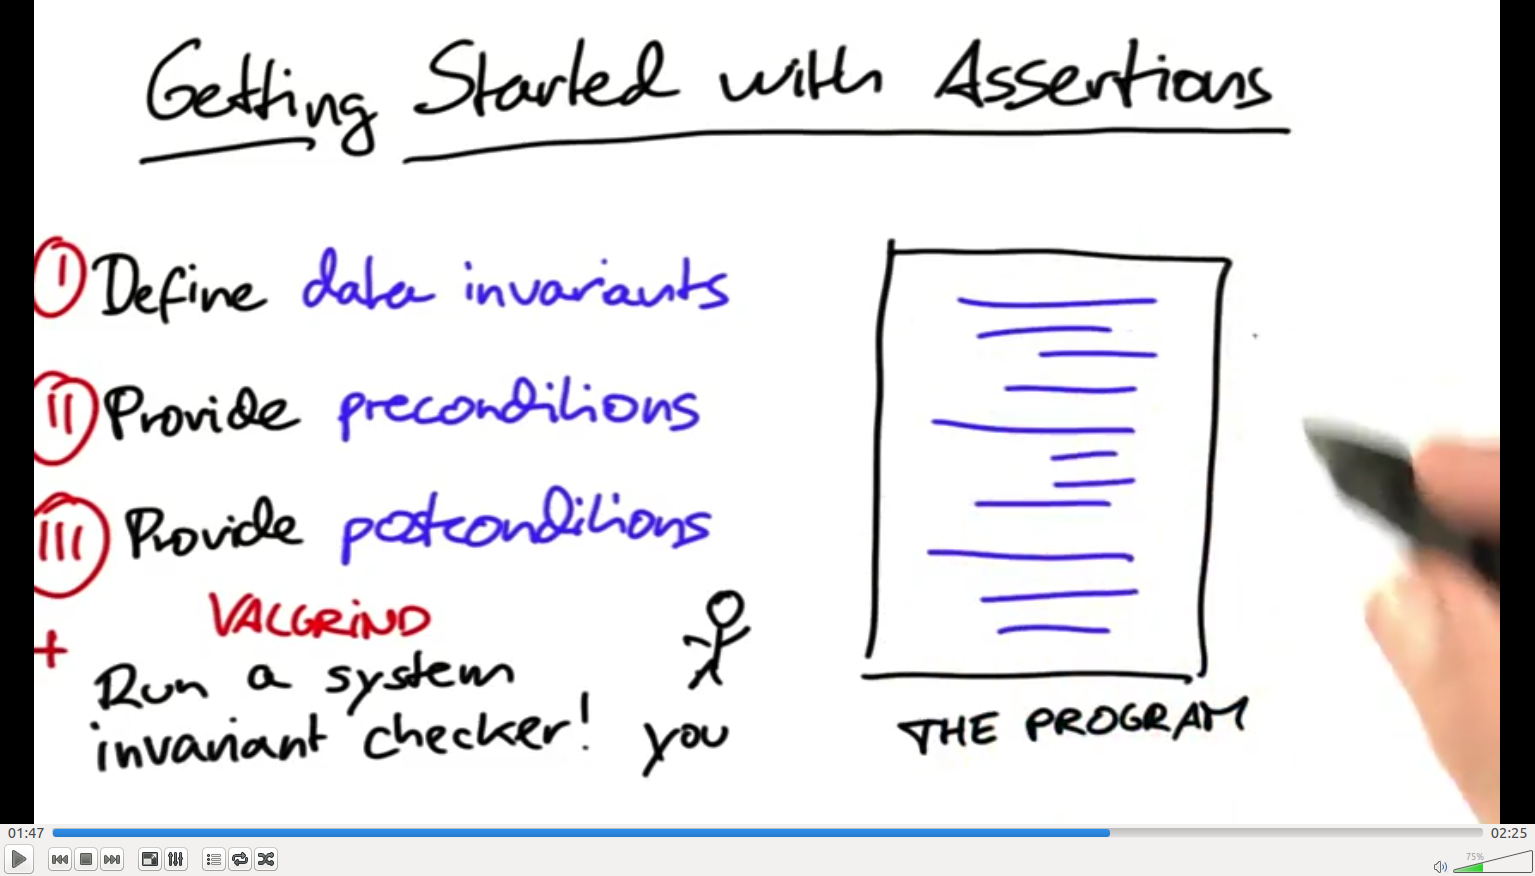 Getting Started with Assertions
I Define data invariants
II Provide preconditions
III Provide postconditions
VALGRIND
+ Run a system
invariant checker!
you
THE PROGRAM
01:47
02:25
75%